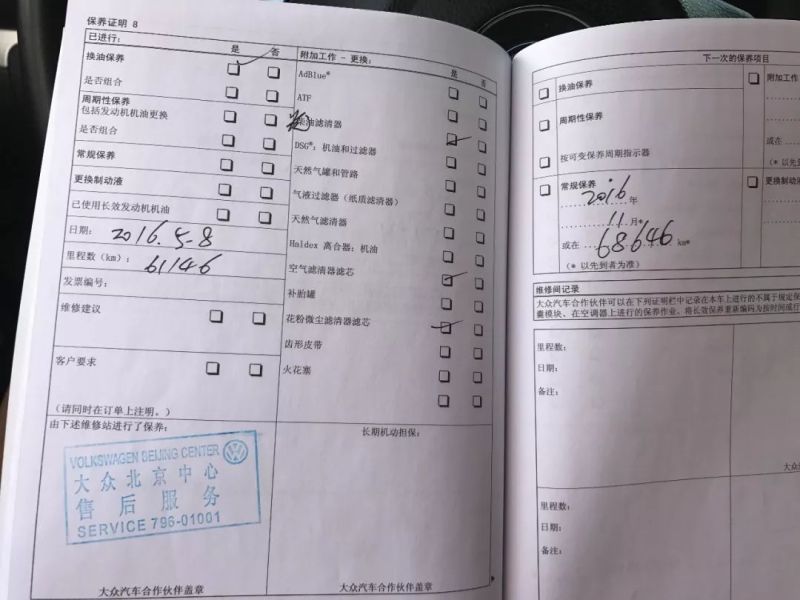 保养证明 8
已进行: 是 否
换油保养
是否组合
周期性保养
包括发动机机油更换
是否组合
常规保养
更换制动液
已使用长效发动机机油
日期: 2016.5-8
里程数（km）: 61146
发票编号:
维修建议
客户要求
（请同时在订单上注明。）
由下述维修站进行了保养:
VOLKSWAGEN BEIJING CENTER
大众北京中心
售后服务
SERVICE 796-01001
大众汽车合作伙伴盖章
附加工作 - 更换: 是 否
AdBlue*
ATF
油滤清器
DSG*: 机油和过滤器
天然气罐和管路
气液过滤器（纸质滤清器）
天然气滤清器
Haldex 离合器: 机油
空气滤清器滤芯
补胎罐
花粉微尘滤清器滤芯
齿形皮带
火花塞
长期机动担保:
大众汽车合作伙伴盖章
下一次的保养项目
换油保养
周期性保养
按可变保养周期指示器
常规保养
2016 年
11 月*
或在 68646 km*
（* 以先到者为准）
附加工作
或在
（* 以先
更换制动
维修间记录
大众汽车合作伙伴可以在下列证明栏中记录在本车上进行的不属于规定保
囊模块、在空调器上进行的保养作业、将长效保养重新编码为按时间或行
里程数:
日期:
备注:
大众
里程数:
日期:
备注: